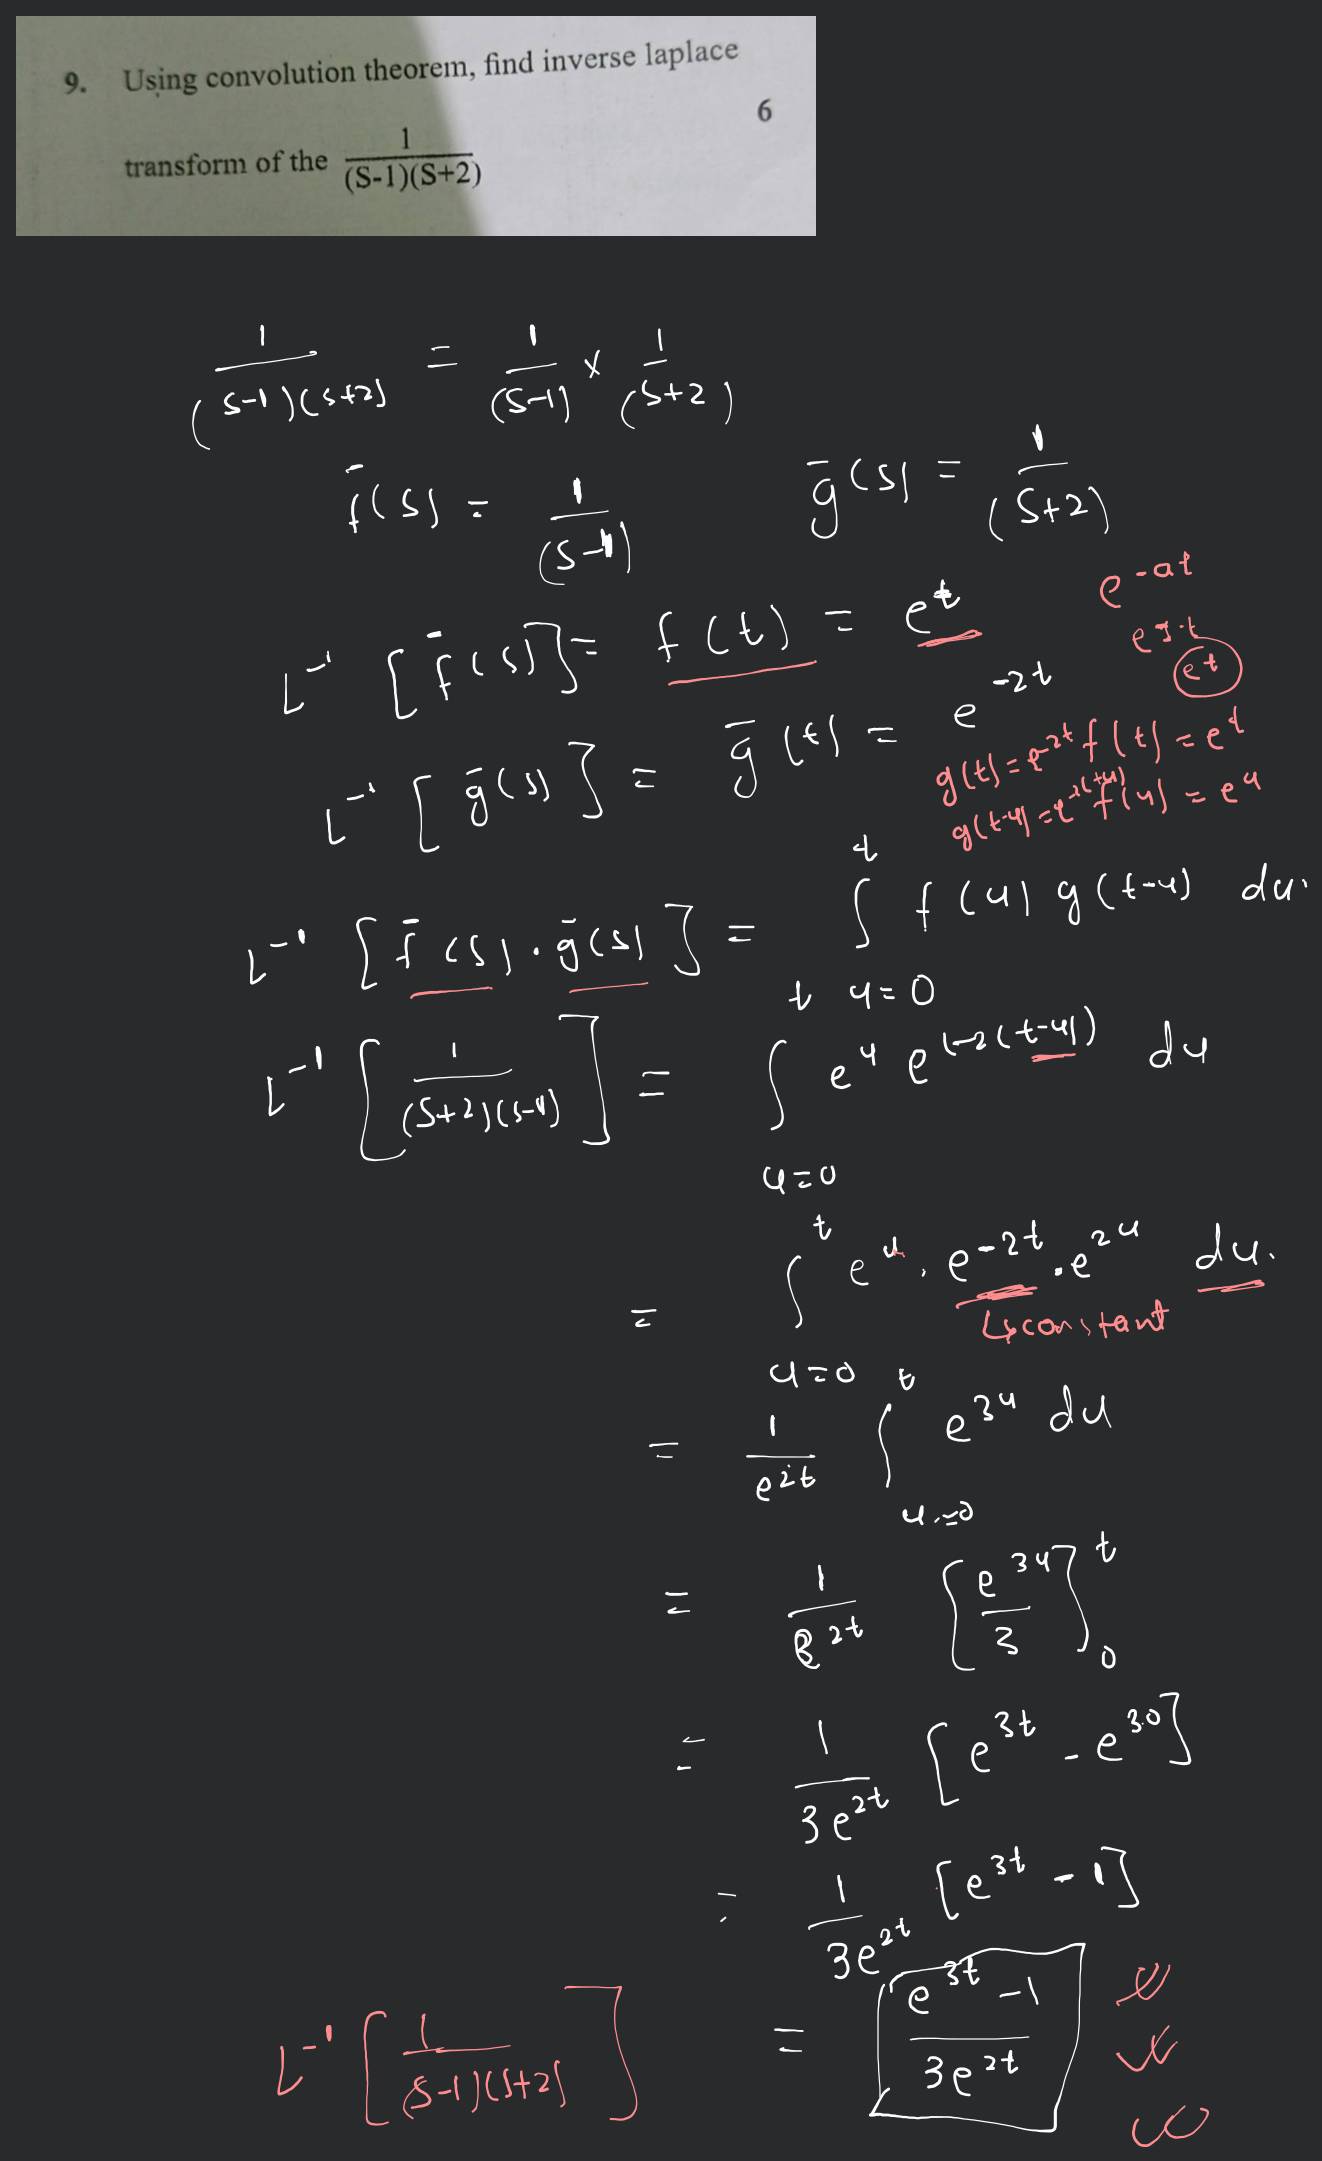 9. Using convolution theorem, find inverse laplace
6
transform of the 1/(S-1)(S+2)
1/(S-1)(S+2) = 1/(S-1) × 1/(S+2)
f̄(S) = 1/(S-1)   ḡ(S) = 1/(S+2)
e^-at
e^1·t
e^t
L^-1 [f̄(S)] = f(t) = e^t
L^-1 [ḡ(S)] = ḡ(t) = e^-2t
g(t) = e^-2t f(t) = e^t
g(t-u) = e^-2(t-u) f(u) = e^u
L^-1 [f̄(S) · ḡ(S)] = ∫_{u=0}^{t} f(u) g(t-u) du.
L^-1 [1/(S+2)(S-1)] = ∫_{u=0}^{t} e^u e^(-2(t-u)) du
= ∫_{u=0}^{t} e^u . e^-2t . e^2u du.
↳ constant
= 1/e^2t ∫_{u=0}^{t} e^3u du
= 1/e^2t [e^3u/3]_0^t
= 1/3e^2t [e^3t - e^3.0]
= 1/3e^2t [e^3t - 1]
L^-1 [1/(S-1)(S+2)] = e^3t - 1/3e^2t